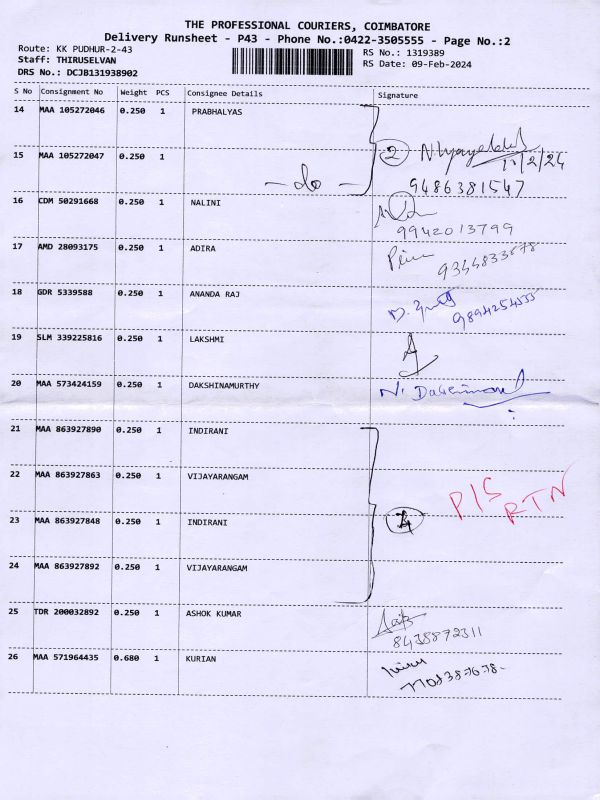 THE PROFESSIONAL COURIERS, COIMBATORE
Delivery Runsheet - P43 - Phone No.:0422-3505555 - Page No.:2
Route: KK PUDHUR-2-43
RS No.: 1319389
Staff: THIRUSELVAN
RS Date: 09-Feb-2024
DRS No.: DCJB131938902
S No Consignment No Weight PCS Consignee Details Signature
14 MAA 105272046 0.250 1 PRABHALYAS
15 MAA 105272047 0.250 1 2
- do - 9486381547
16 CDM 50291668 0.250 1 NALINI
9942013799
17 AMD 28093175 0.250 1 ADIRA
18 GDR 5339588 0.250 1 ANANDA RAJ
19 SLM 339225816 0.250 1 LAKSHMI
20 MAA 573424159 0.250 1 DAKSHINAMURTHY
21 MAA 863927890 0.250 1 INDIRANI
22 MAA 863927863 0.250 1 VIJAYARANGAM P/S
RTN
23 MAA 863927848 0.250 1 INDIRANI
24 MAA 863927892 0.250 1 VIJAYARANGAM
25 TDR 200032892 0.250 1 ASHOK KUMAR
8438872311
26 MAA 571964435 0.680 1 KURIAN